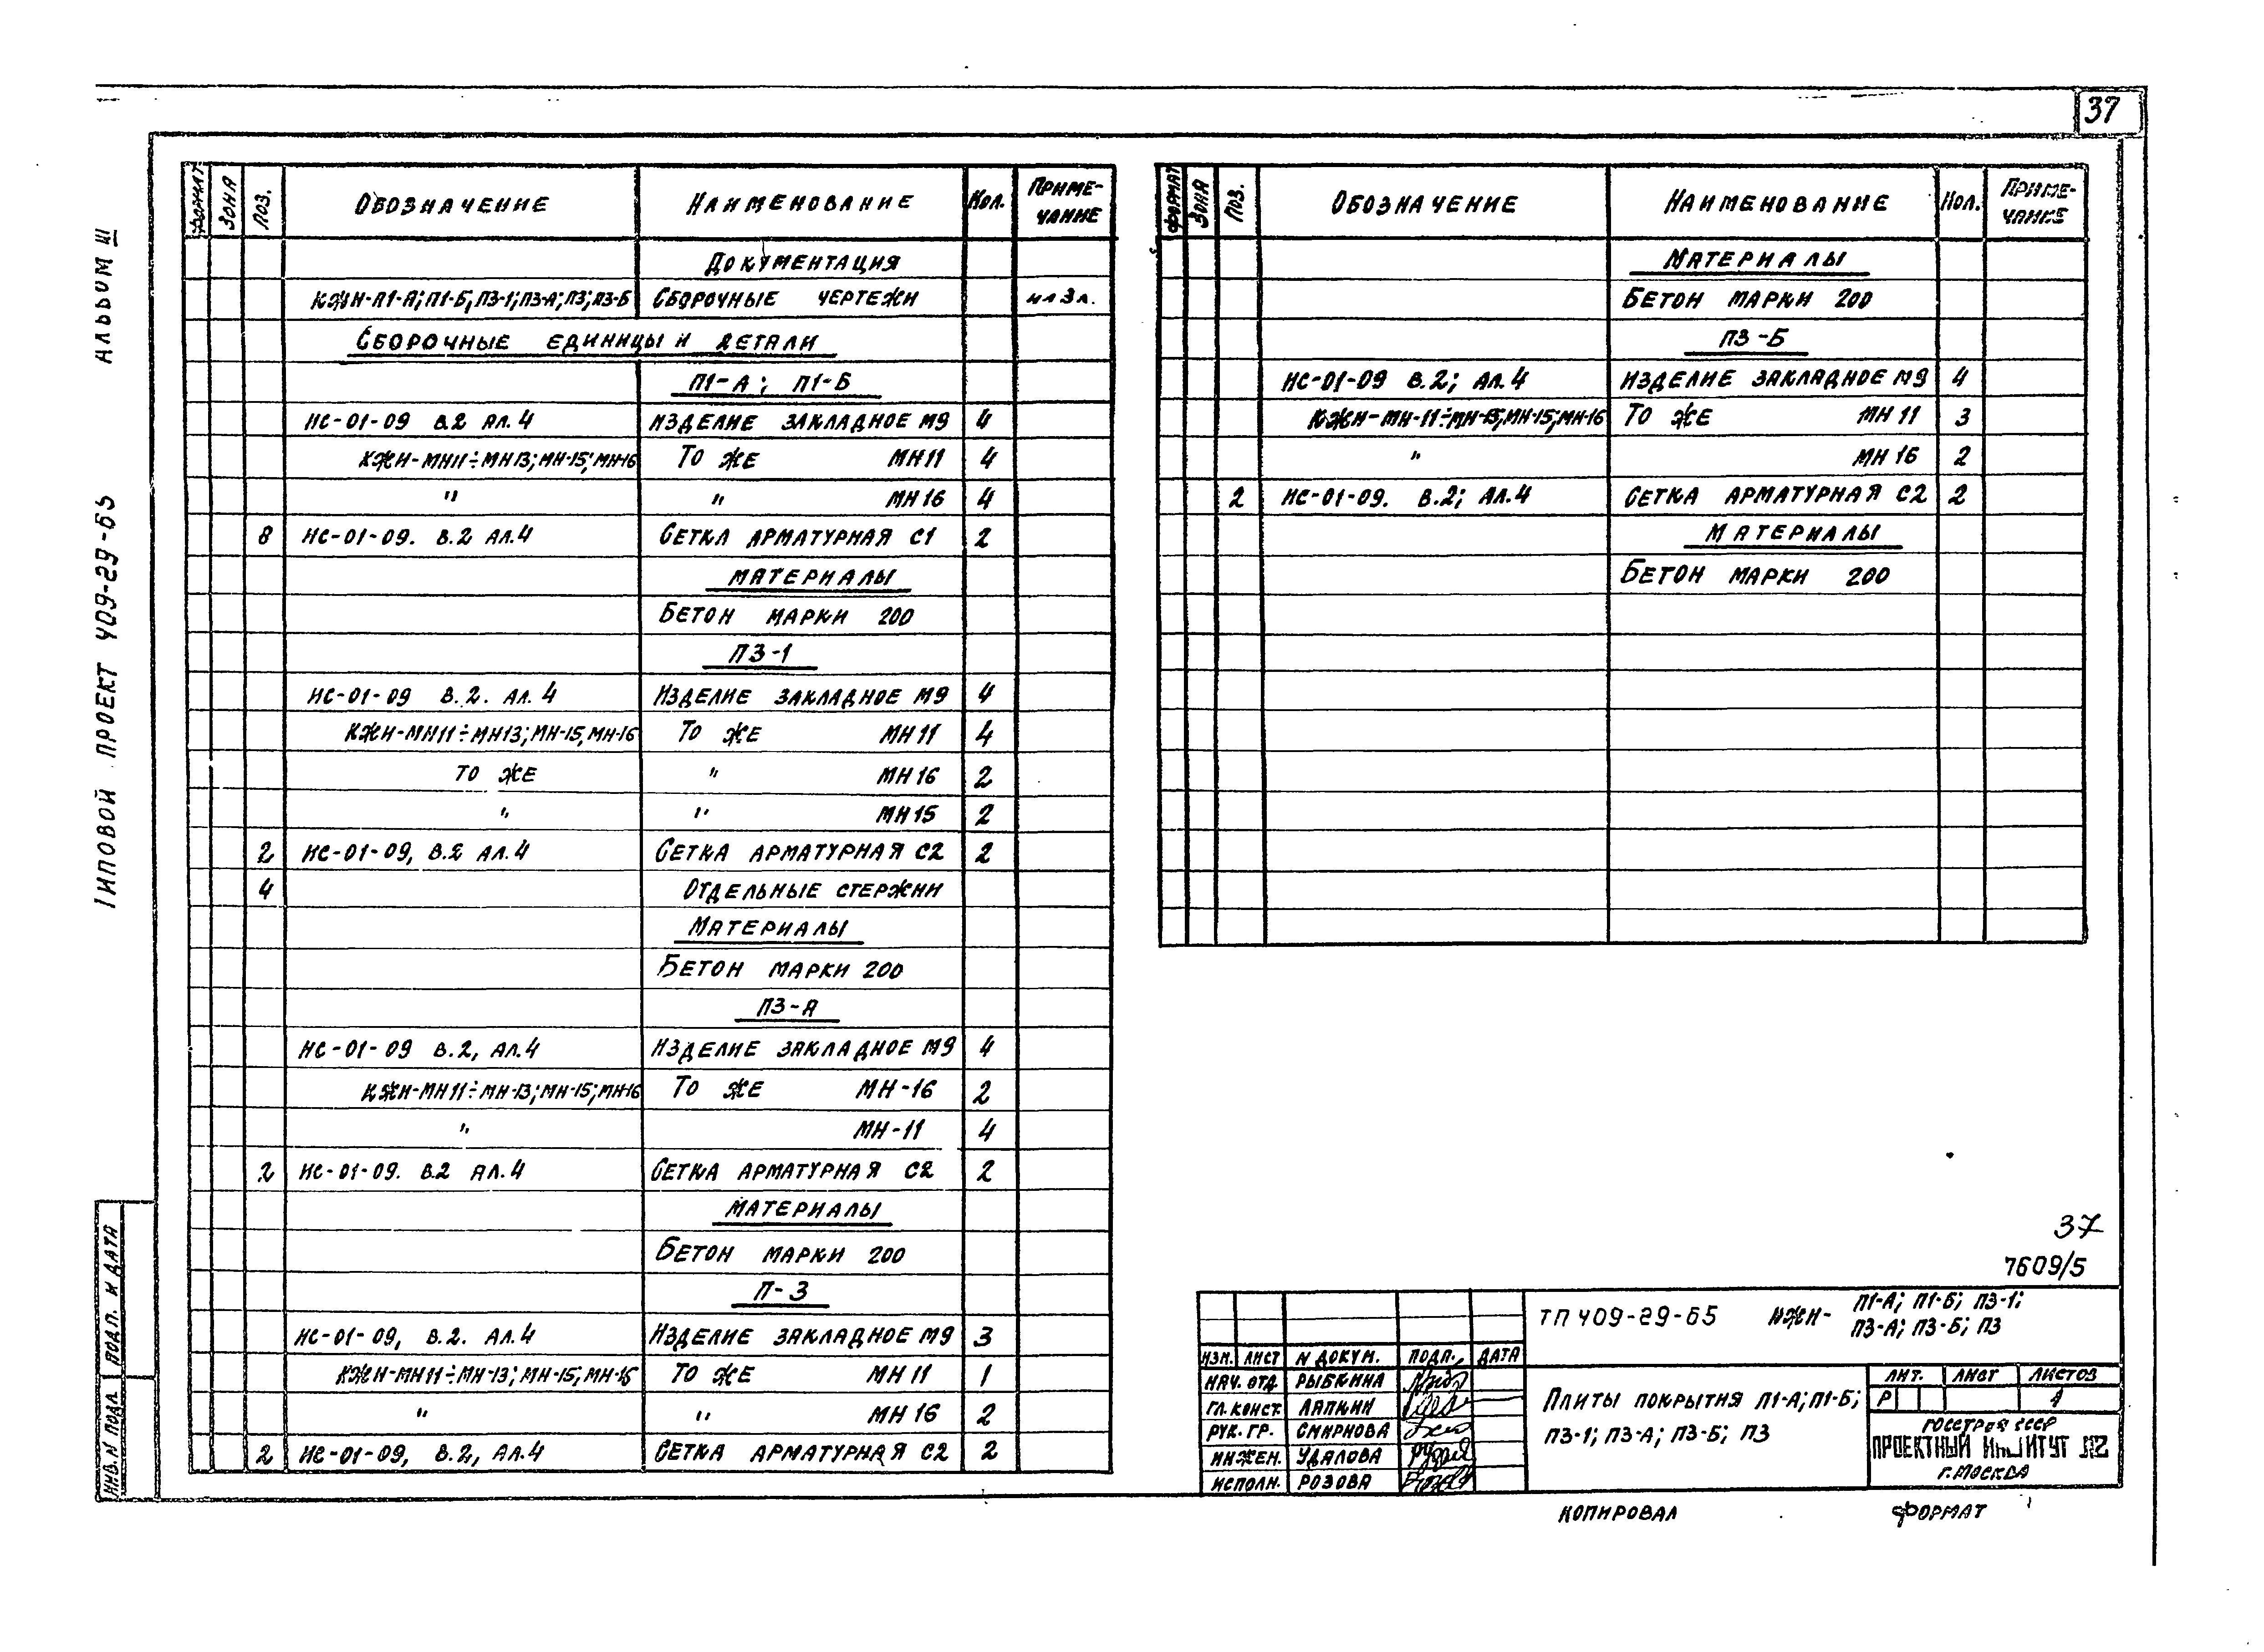 37
АЛЬБОМ III
ТИПОВОЙ ПРОЕКТ 409-29-65
ИНВ. N ПОДЛ. ПОДП. И ДАТА
ФОРМАТ ЗОНА ПОЗ. ОБОЗНАЧЕНИЕ НАИМЕНОВАНИЕ КОЛ. ПРИМЕ-
ЧАНИЕ
ДОКУМЕНТАЦИЯ
КЖИ-П1-А; П1-Б; П3-1; П3-А; П3; П3-Б СБОРОЧНЫЕ ЧЕРТЕЖИ НА 3Л.
СБОРОЧНЫЕ ЕДИНИЦЫ И ДЕТАЛИ
П1-А; П1-Б
ИС-01-09 В.2 АЛ.4 ИЗДЕЛИЕ ЗАКЛАДНОЕ М9 4
КЖИ-МН11÷МН13; МН-15; МН-16 ТО ЖЕ МН11 4
" " МН16 4
8 ИС-01-09. В.2 АЛ.4 СЕТКА АРМАТУРНАЯ С1 2
МАТЕРИАЛЫ
БЕТОН МАРКИ 200
П3-1
ИС-01-09 В.2. АЛ.4 ИЗДЕЛИЕ ЗАКЛАДНОЕ М9 4
КЖИ-МН11÷МН13; МН-15, МН-16 ТО ЖЕ МН11 4
ТО ЖЕ " МН16 2
" " МН15 2
2 ИС-01-09, В.2 АЛ.4 СЕТКА АРМАТУРНАЯ С2 2
4 ОТДЕЛЬНЫЕ СТЕРЖНИ
МАТЕРИАЛЫ
БЕТОН МАРКИ 200
П3-А
ИС-01-09 В.2, АЛ.4 ИЗДЕЛИЕ ЗАКЛАДНОЕ М9 4
КЖИ-МН11÷МН-13; МН-15; МН-16 ТО ЖЕ МН-16 2
" МН-11 4
2 ИС-01-09. В.2 АЛ.4 СЕТКА АРМАТУРНАЯ С2 2
МАТЕРИАЛЫ
БЕТОН МАРКИ 200
П-3
ИС-01-09, В.2. АЛ.4 ИЗДЕЛИЕ ЗАКЛАДНОЕ М9 3
КЖИ-МН11÷МН-13; МН-15, МН-16 ТО ЖЕ МН11 1
" " МН16 2
2 ИС-01-09, В.2, АЛ.4 СЕТКА АРМАТУРНАЯ С2 2
ФОРМАТ ЗОНА ПОЗ. ОБОЗНАЧЕНИЕ НАИМЕНОВАНИЕ КОЛ. ПРИМЕ-
ЧАНИЕ
МАТЕРИАЛЫ
БЕТОН МАРКИ 200
П3-Б
ИС-01-09 В.2; АЛ.4 ИЗДЕЛИЕ ЗАКЛАДНОЕ М9 4
КЖИ-МН-11÷МН-13, МН-15; МН-16 ТО ЖЕ МН11 3
" МН16 2
2 ИС-01-09. В.2; АЛ.4 СЕТКА АРМАТУРНАЯ С2 2
МАТЕРИАЛЫ
БЕТОН МАРКИ 200
37
7609/5
ТП 409-29-65 КЖИ- П1-А; П1-Б; П3-1;
П3-А; П3-Б; П3
ИЗМ. ЛИСТ N ДОКУМ. ПОДП. ДАТА
НАЧ. ОТД. РЫБКИНА
ГЛ. КОНСТ. ЛАПКИН
РУК. ГР. СМИРНОВА
ИНЖЕН. УДАЛОВА
ИСПОЛН. РОЗОВА
ПЛИТЫ ПОКРЫТИЯ П1-А; П1-Б;
П3-1; П3-А; П3-Б; П3
ЛИТ. ЛИСТ ЛИСТОВ
Р 1
ГОССТРОЙ СССР
ПРОЕКТНЫЙ ИНСТИТУТ №2
Г. МОСКВА
КОПИРОВАЛ ФОРМАТ